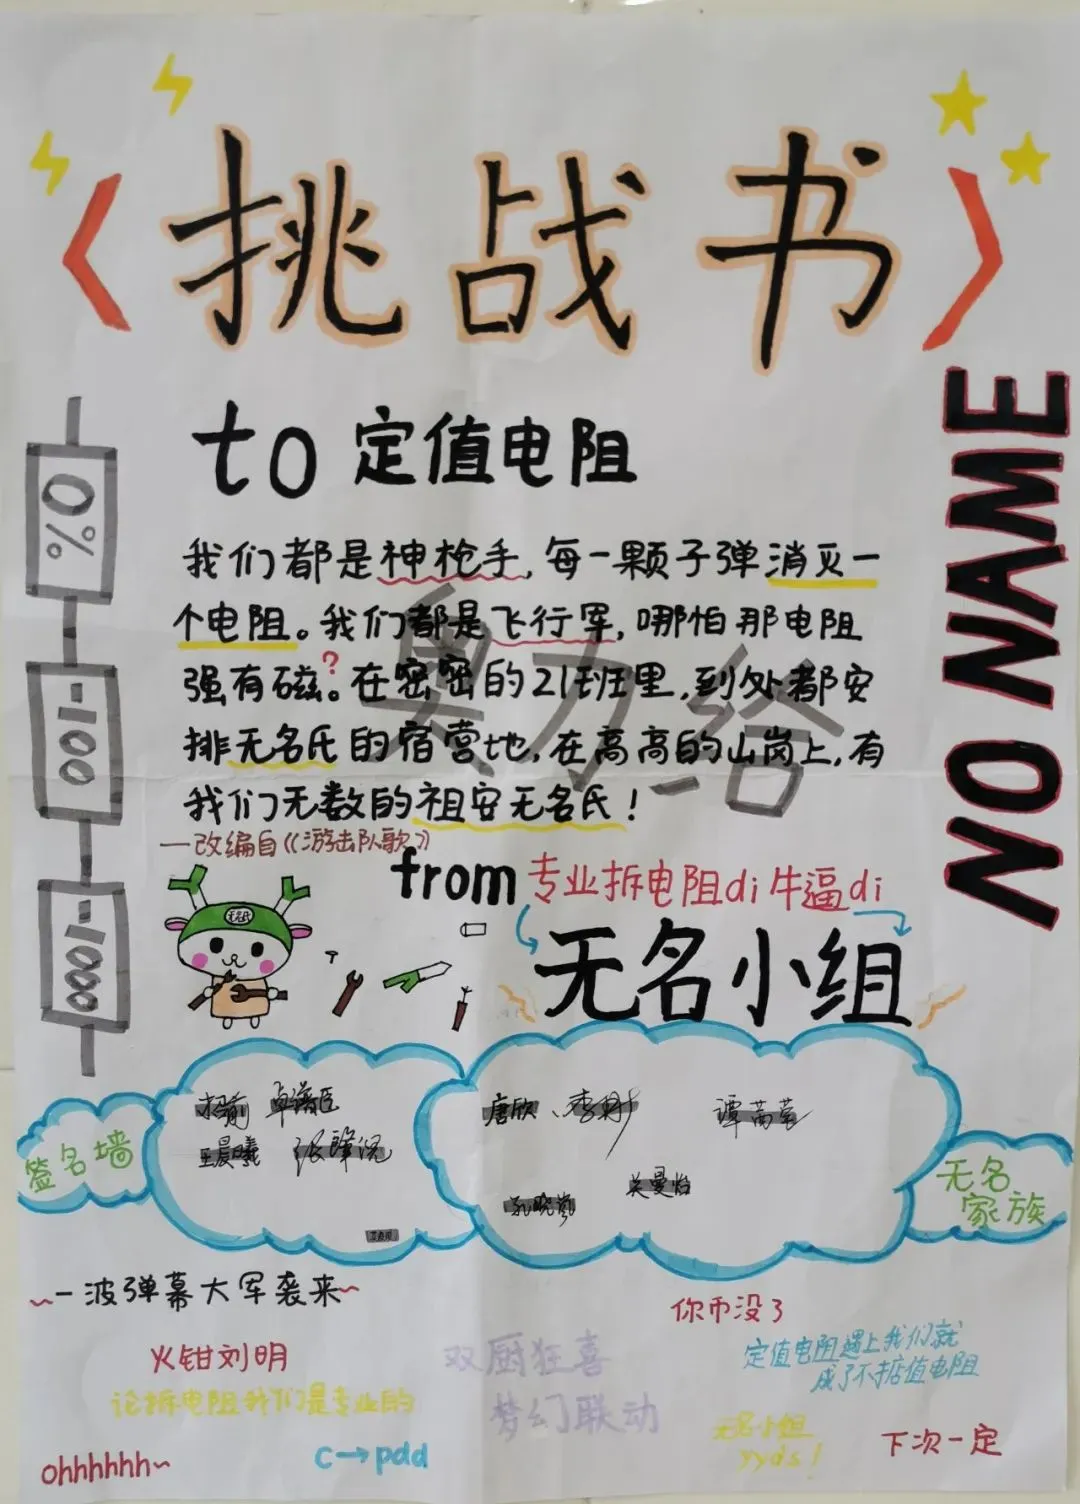 《挑战书》
to 定值电阻
NO NAME
0%
100%
1000%
我们都是神枪手,每一颗子弹消灭一
个电阻。我们都是飞行军,哪怕那电阻
强有磁?。在密密的21班里,到处都安
排无名氏的宿营地,在高高的山岗上,有
我们无数的祖安无名氏!
奥力给
—改编自《游击队歌》
from 专业拆电阻di牛逼di
无名小组
无名氏
签名墙
唐欣
李
谭
吴曼怡
王晨曦
无名
家族
~一波弹幕大军袭来~
你币没了
火钳刘明
双厨狂喜
梦幻联动
定值电阻遇上我们就
成了不掂值电阻
论拆电阻我们是专业的
无名小组
yyds!
下次一定
ohhhhhh~
c→pdd